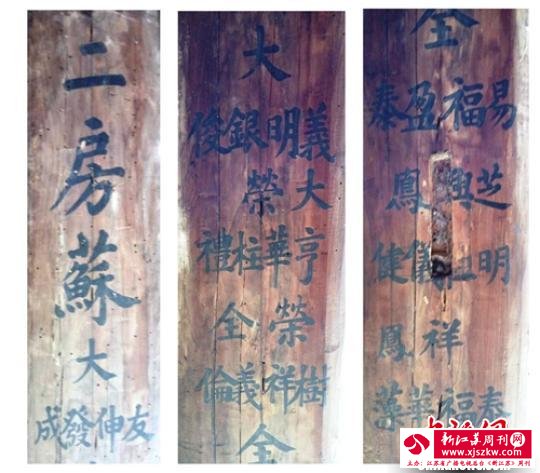 二房蘇大
友伸發成
大
義明銀俊
大榮
亨華柱禮
榮全
樹祥義倫
全
全
易福盈泰
芝興鳳
明儀健
祥鳳
春福華
新江苏周刊网
www.xjszkw.com
主办：江苏省广播电视总台《新江苏》周刊